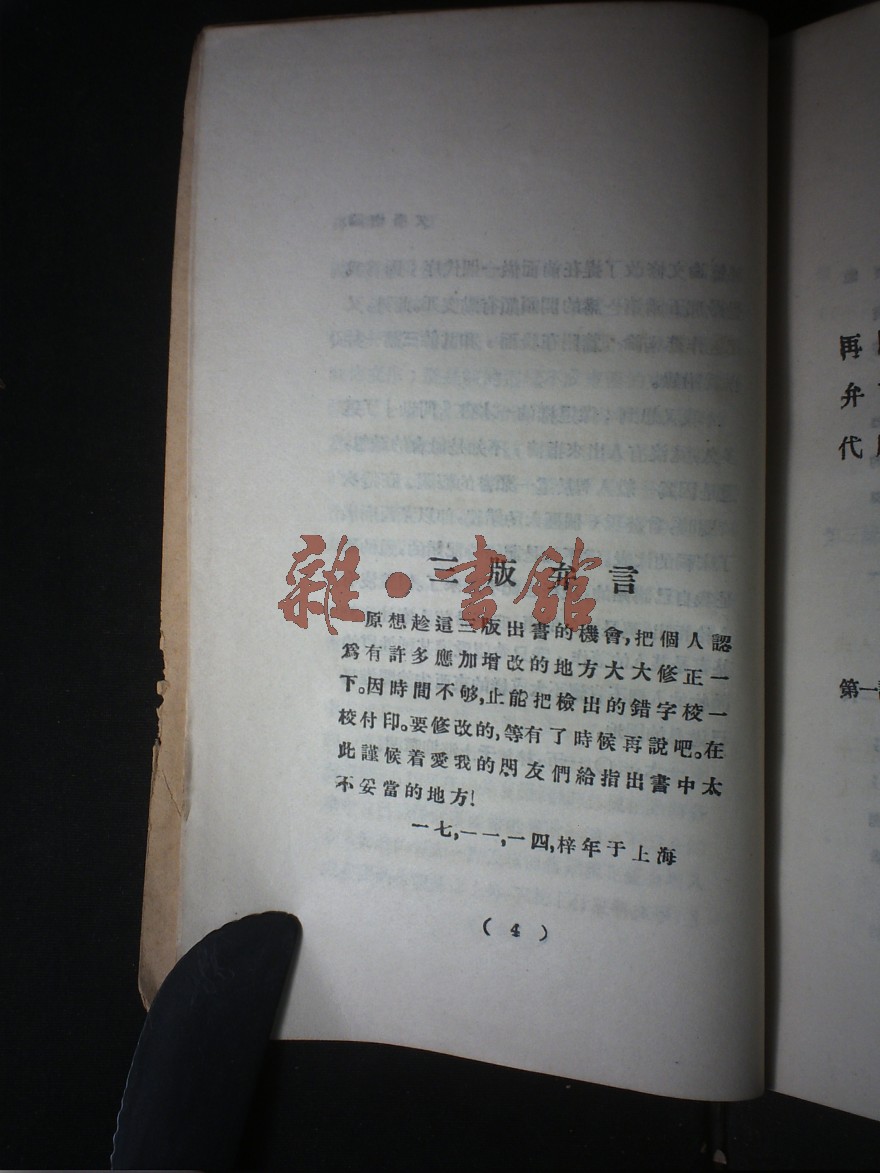 三版弁言
雜·書館
原想趁這三版出書的機會,把個人認
爲有許多應加增改的地方大大修正一
下。因時間不够,止能把檢出的錯字校一
校付印。要修改的,等有了時候再說吧。在
此謹候着愛我的朋友們給指出書中太
不妥當的地方!
一七,一一,一四,梓年于上海
(4)
再
弁
代
第一